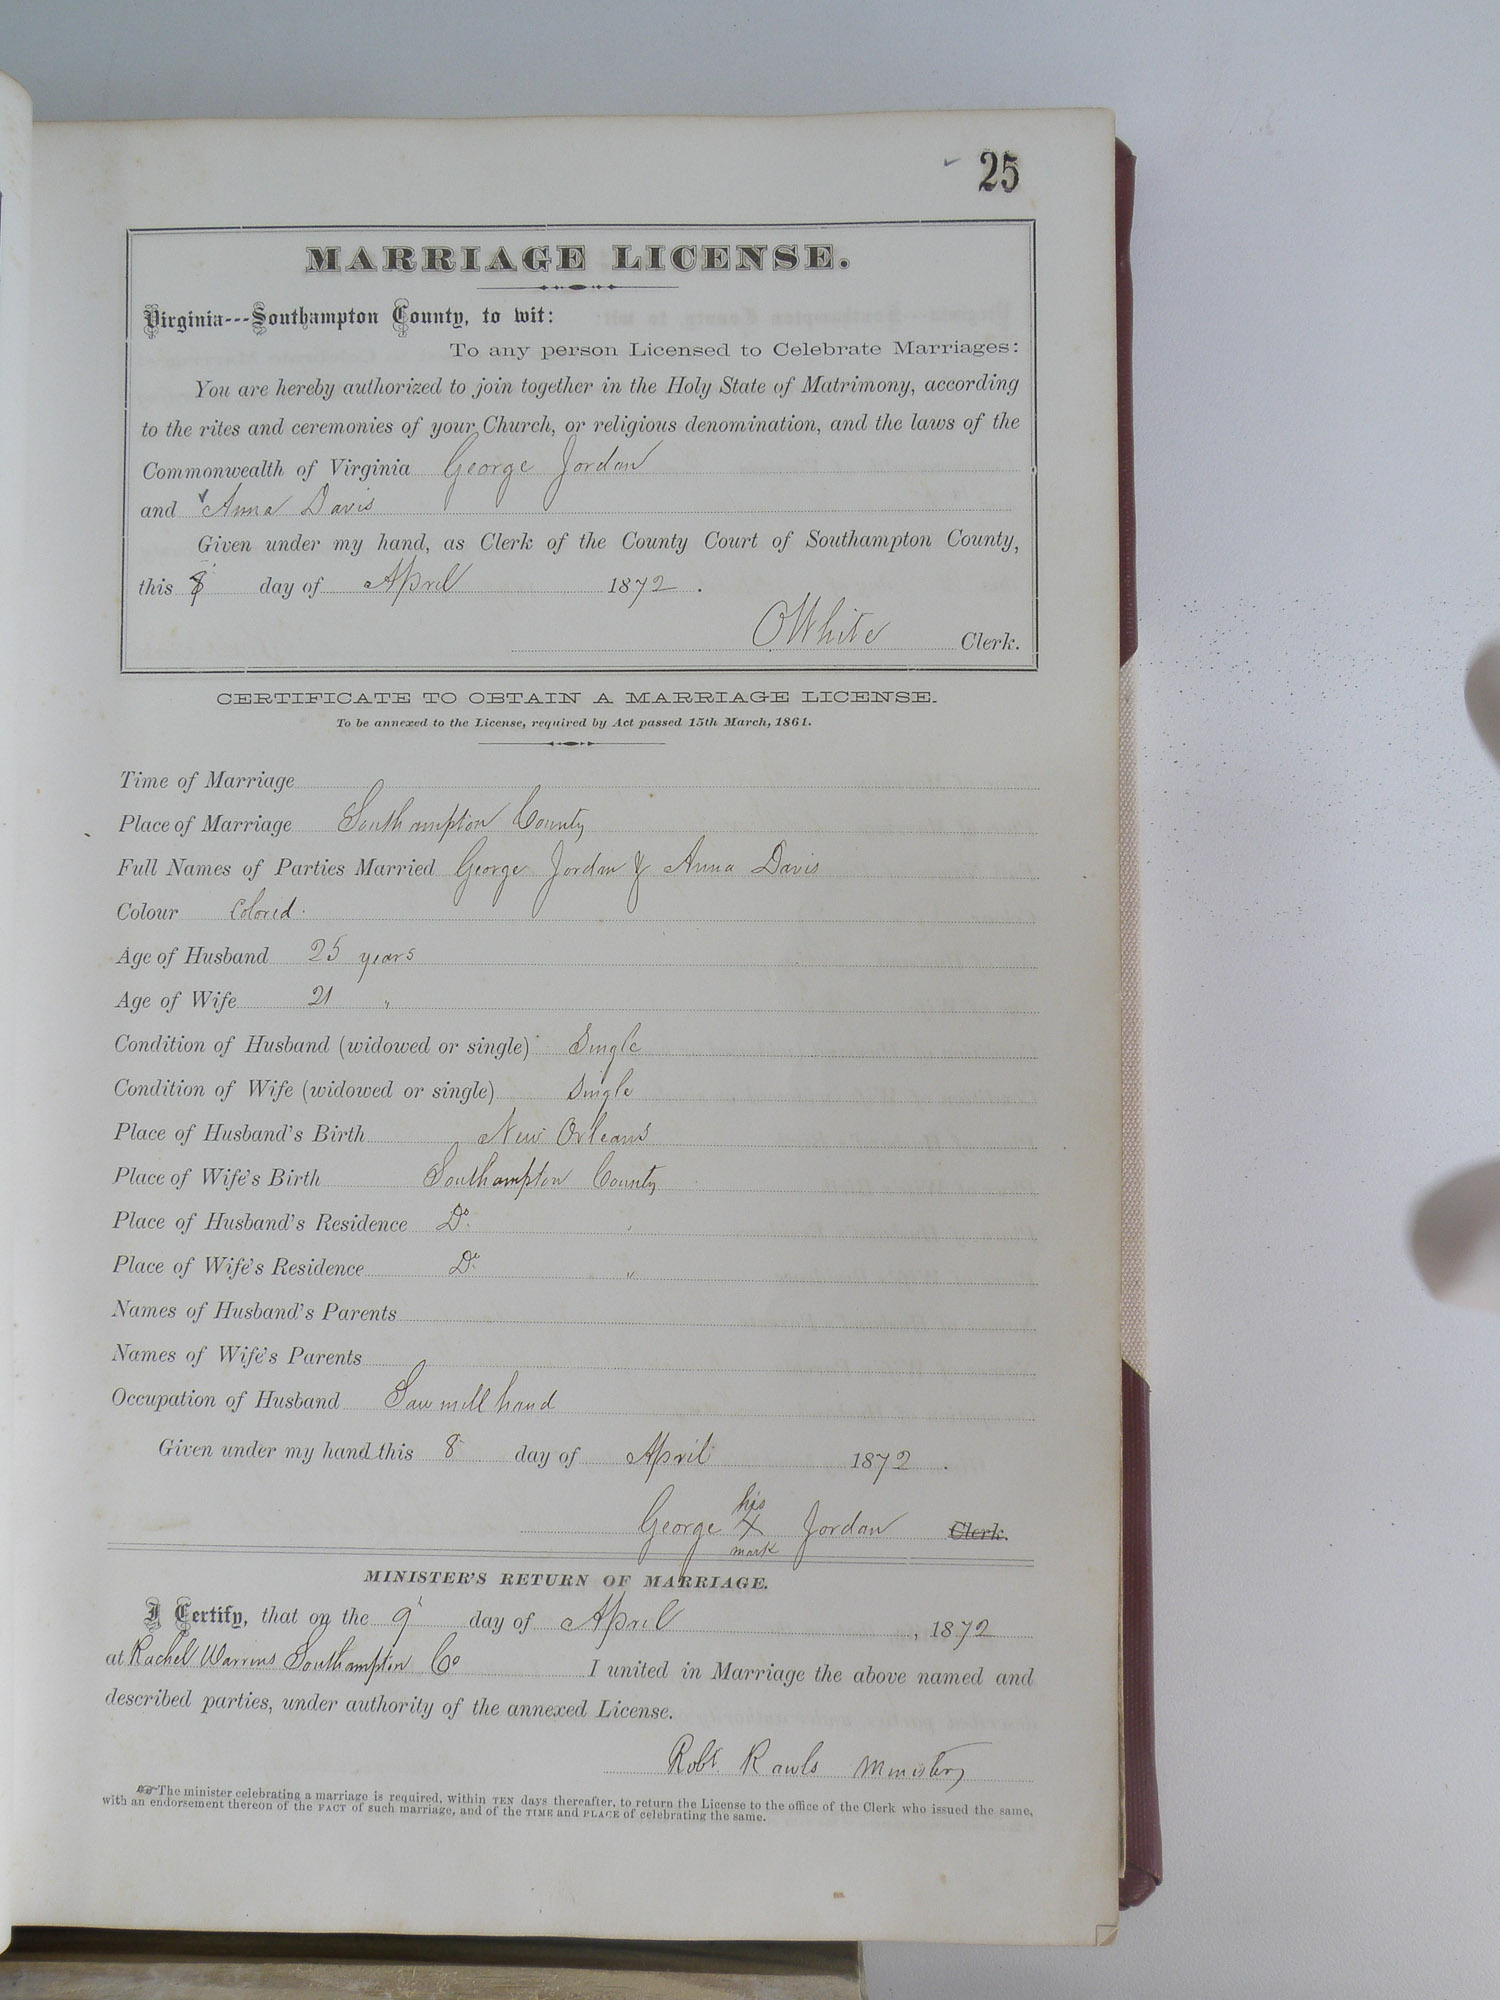 25
MARRIAGE LICENSE.
Virginia---Southampton County, to wit:
To any person Licensed to Celebrate Marriages:
You are hereby authorized to join together in the Holy State of Matrimony, according
to the rites and ceremonies of your Church, or religious denomination, and the laws of the
Commonwealth of Virginia George Jordan
and Anna Davis
Given under my hand, as Clerk of the County Court of Southampton County,
this 8 day of April 1872.
O White Clerk.
CERTIFICATE TO OBTAIN A MARRIAGE LICENSE.
To be annexed to the License, required by Act passed 15th March, 1861.
Time of Marriage
Place of Marriage Southampton County
Full Names of Parties Married George Jordan & Anna Davis
Colour Colored.
Age of Husband 25 years
Age of Wife 21 "
Condition of Husband (widowed or single) Single
Condition of Wife (widowed or single) Single
Place of Husband's Birth New Orleans
Place of Wife's Birth Southampton County
Place of Husband's Residence Do. "
Place of Wife's Residence Do. "
Names of Husband's Parents
Names of Wife's Parents
Occupation of Husband Saw mill hand
Given under my hand this 8 day of April 1872.
his
George X Jordan Clerk.
mark
MINISTER'S RETURN OF MARRIAGE.
I Certify, that on the 9 day of April, 1872
at Rachel Warrens Southampton Co I united in Marriage the above named and
described parties, under authority of the annexed License.
Robt. Rawls Minister
The minister celebrating a marriage is required, within TEN days thereafter, to return the License to the office of the Clerk who issued the same,
with an endorsement thereon of the FACT of such marriage, and of the TIME and PLACE of celebrating the same.